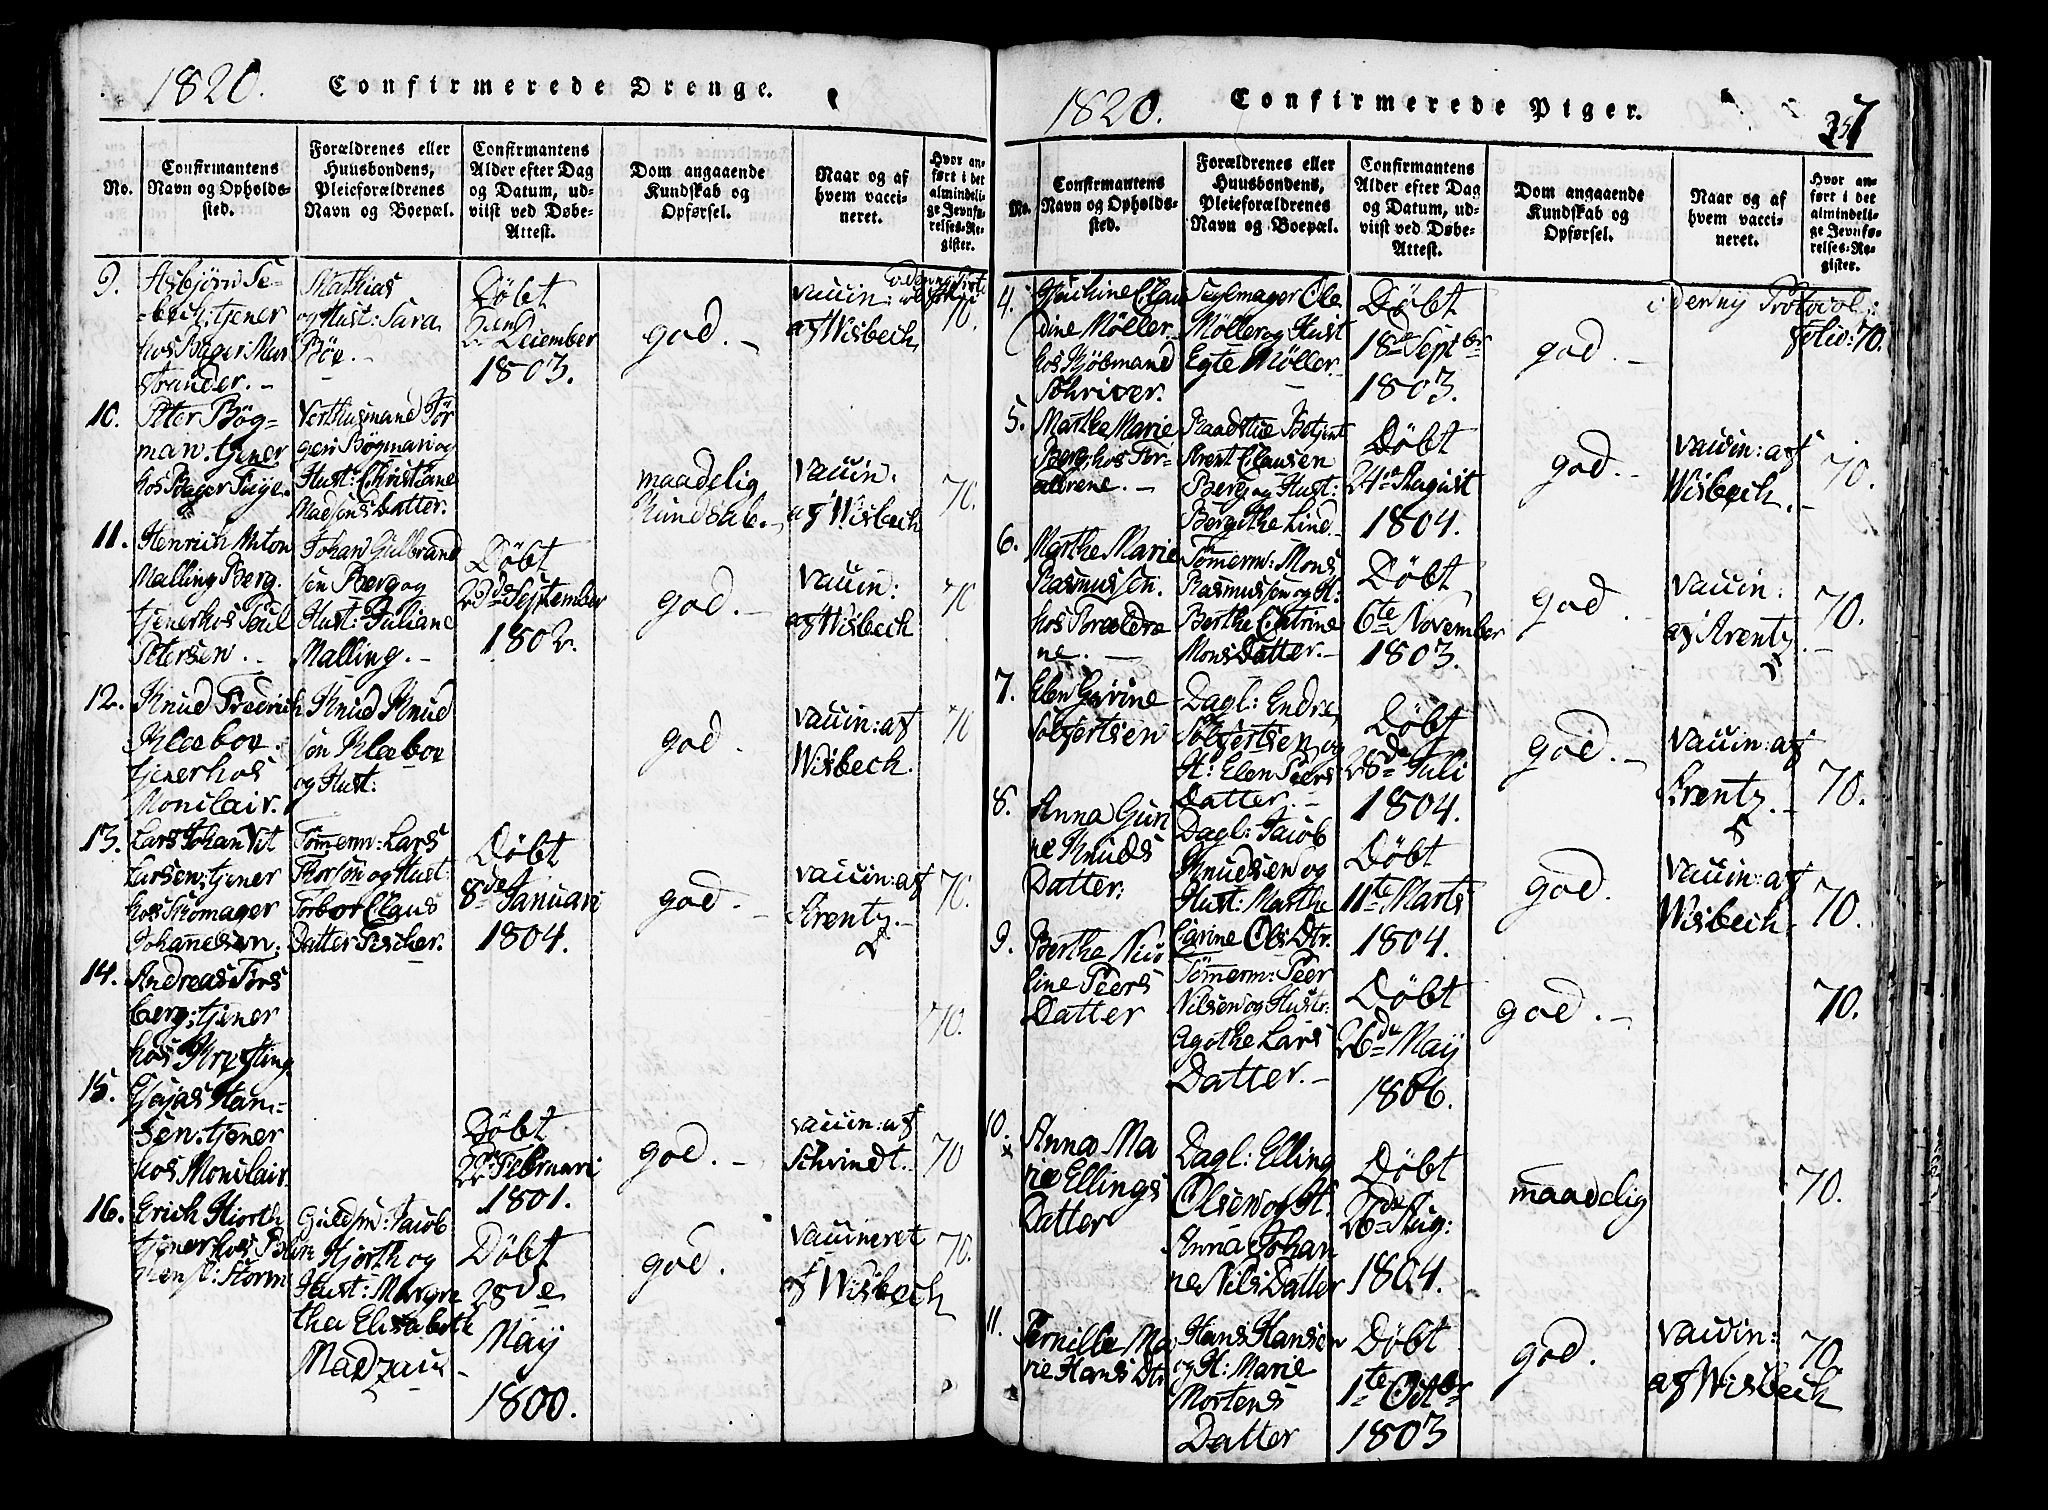 1820. Confirmerede Drenge.
No.
Confirmantens
Navn og Opholds-
sted.
Forældrenes eller
Huusbondens,
Pleieforældrenes
Navn og Boepæl.
Confirmantens
Alder efter Dag
og Datum, ud-
viist ved Døbe-
Attest.
Dom angaaende
Kundskab og
Opførsel.
Naar og af
hvem vacci-
neret.
Hvor an-
ført i det
almindeli-
ge Jevnfø-
relses-Re-
gister.
9.
Asbjørn Se-
tjener
hos Bager Mar
strander. -
Mathias
og Hust: Sara
Bøe. -
Döbt
2den December
1803.
god. -
vaccin:
af Wisbech
70.
10.
Peter Bög-
man. tjener
hos Bager
Verthusmand Jör
gen Bögman og
Hust: Christiane
Madsens Datter.
maadelig
Kundskab. -
vaccin.
af Wisbech
70.
11.
Henrich Anton
Malling Berg.
tjener hos Poul
Petersen. -
Johan Gulbrand
sen Berg og
Hust: Juliane
Malling. -
Döbt
23de September
1802.
god. -
vaccin:
af Wisbech
70
12.
Knud Fredrich
Kleeboe.
tjener hos
Monclair.
Knud Knud
sen Kleeboe
og Hust:
god.
vaccin: af
Wisbech.
70
13.
Lars Johan Vit
Larsen: tjener
hos Skomager
Johannesen.
Tömerm: Lars
Thorsen og Hust:
Torbor Claus
Datter Fischer.
Döbt
8de Januari
1804.
god. -
vaccin: af
Arentz. -
70.
14.
Andreas Fors
berg; tjener
hos Kysting
70.
15.
Esajas Han-
sen. tjener
hos Monclair.
Döbt
22de Februari
1801.
god. -
vaccin: af
Schvindt.
70
16.
Erich Hiorth
tjener hos
Storm
Guldsm: Jacob
Hjorth og
Hust: Margre
tha Elisabeth
Madzau
Döbt
28de
Maÿ
1800.
god.
vaccineret
af Wisbech
70.
1820. Confirmerede Piger.
357
No.
Confirmantens
Navn og Opholds-
sted.
Forældrenes eller
Huusbondens,
Pleieforældrenes
Navn og Boepæl.
Confirmantens
Alder efter Dag
og Datum, ud-
viist ved Døbe-
Attest.
Dom angaaende
Kundskab og
Opførsel.
Naar og af
hvem vacci-
neret.
Hvor an-
ført i det
almindeli-
ge Jevnfø-
relses-Re-
gister.
4.
dine Möller.
hos Kjöbmand
Schriver.
Seglmager Ole
Möller og Hust
Egte Möller. -
Döbt
18de Septbr
1803.
god. -
den nÿ Protocol:
folio: 70.
5.
Marthe Marie
Berg; hos For-
ældrene. -
Raadstue Betjent
Arent Clausen
Berg og Hust:
Bergithe Lind. -
Döbt
24de August
1804.
god. -
vaccin: af
Wisbech. -
70.
6.
Marthe Marie
Rasmussen.
hos Forældre
ne. -
Tömerm: Mons
Rasmussen og H:
Berthe Catrine
Mons Datter. -
Döbt
6te November
1803.
god
vaccin:
af Arentz. -
70.
7.
Elen Gurine
Solgertsen
Dagl: Endre
Solgertsen og
H: Elen Peers
Datter. -
Döbt
28de Juli
1804.
god. -
vaccin: af
Arentz. -
70.
8.
Anna Guri
ne Knuds
Datter:
Dagl: Jacob
Knudsen og
Hust: Marthe
Carine Ols Dtr.
Döbt
11te Marts
1804.
god.
vaccin: af
Wisbech.
70.
9.
Berthe Nico
line Peers
Datter
Tömerm: Peer
Nilsen og Hustr:
Agothe Lars
Datter. -
Döbt
26de Maÿ
1806.
god. -
70.
10.
Anna Ma
rie Ellings
Datter
Dagl: Elling
Olsen og H:
Anna Johan
ne Nils Datter
Döbt
26de Aug:
1804.
maadelig
70.
11.
Pernille Ma
rie Hans Dtr
Hans Hansen
og H: Marie
Mortens
Datter
Döbt
1te Octbr
1803
god.
vaccin:
af Wisbech
70.